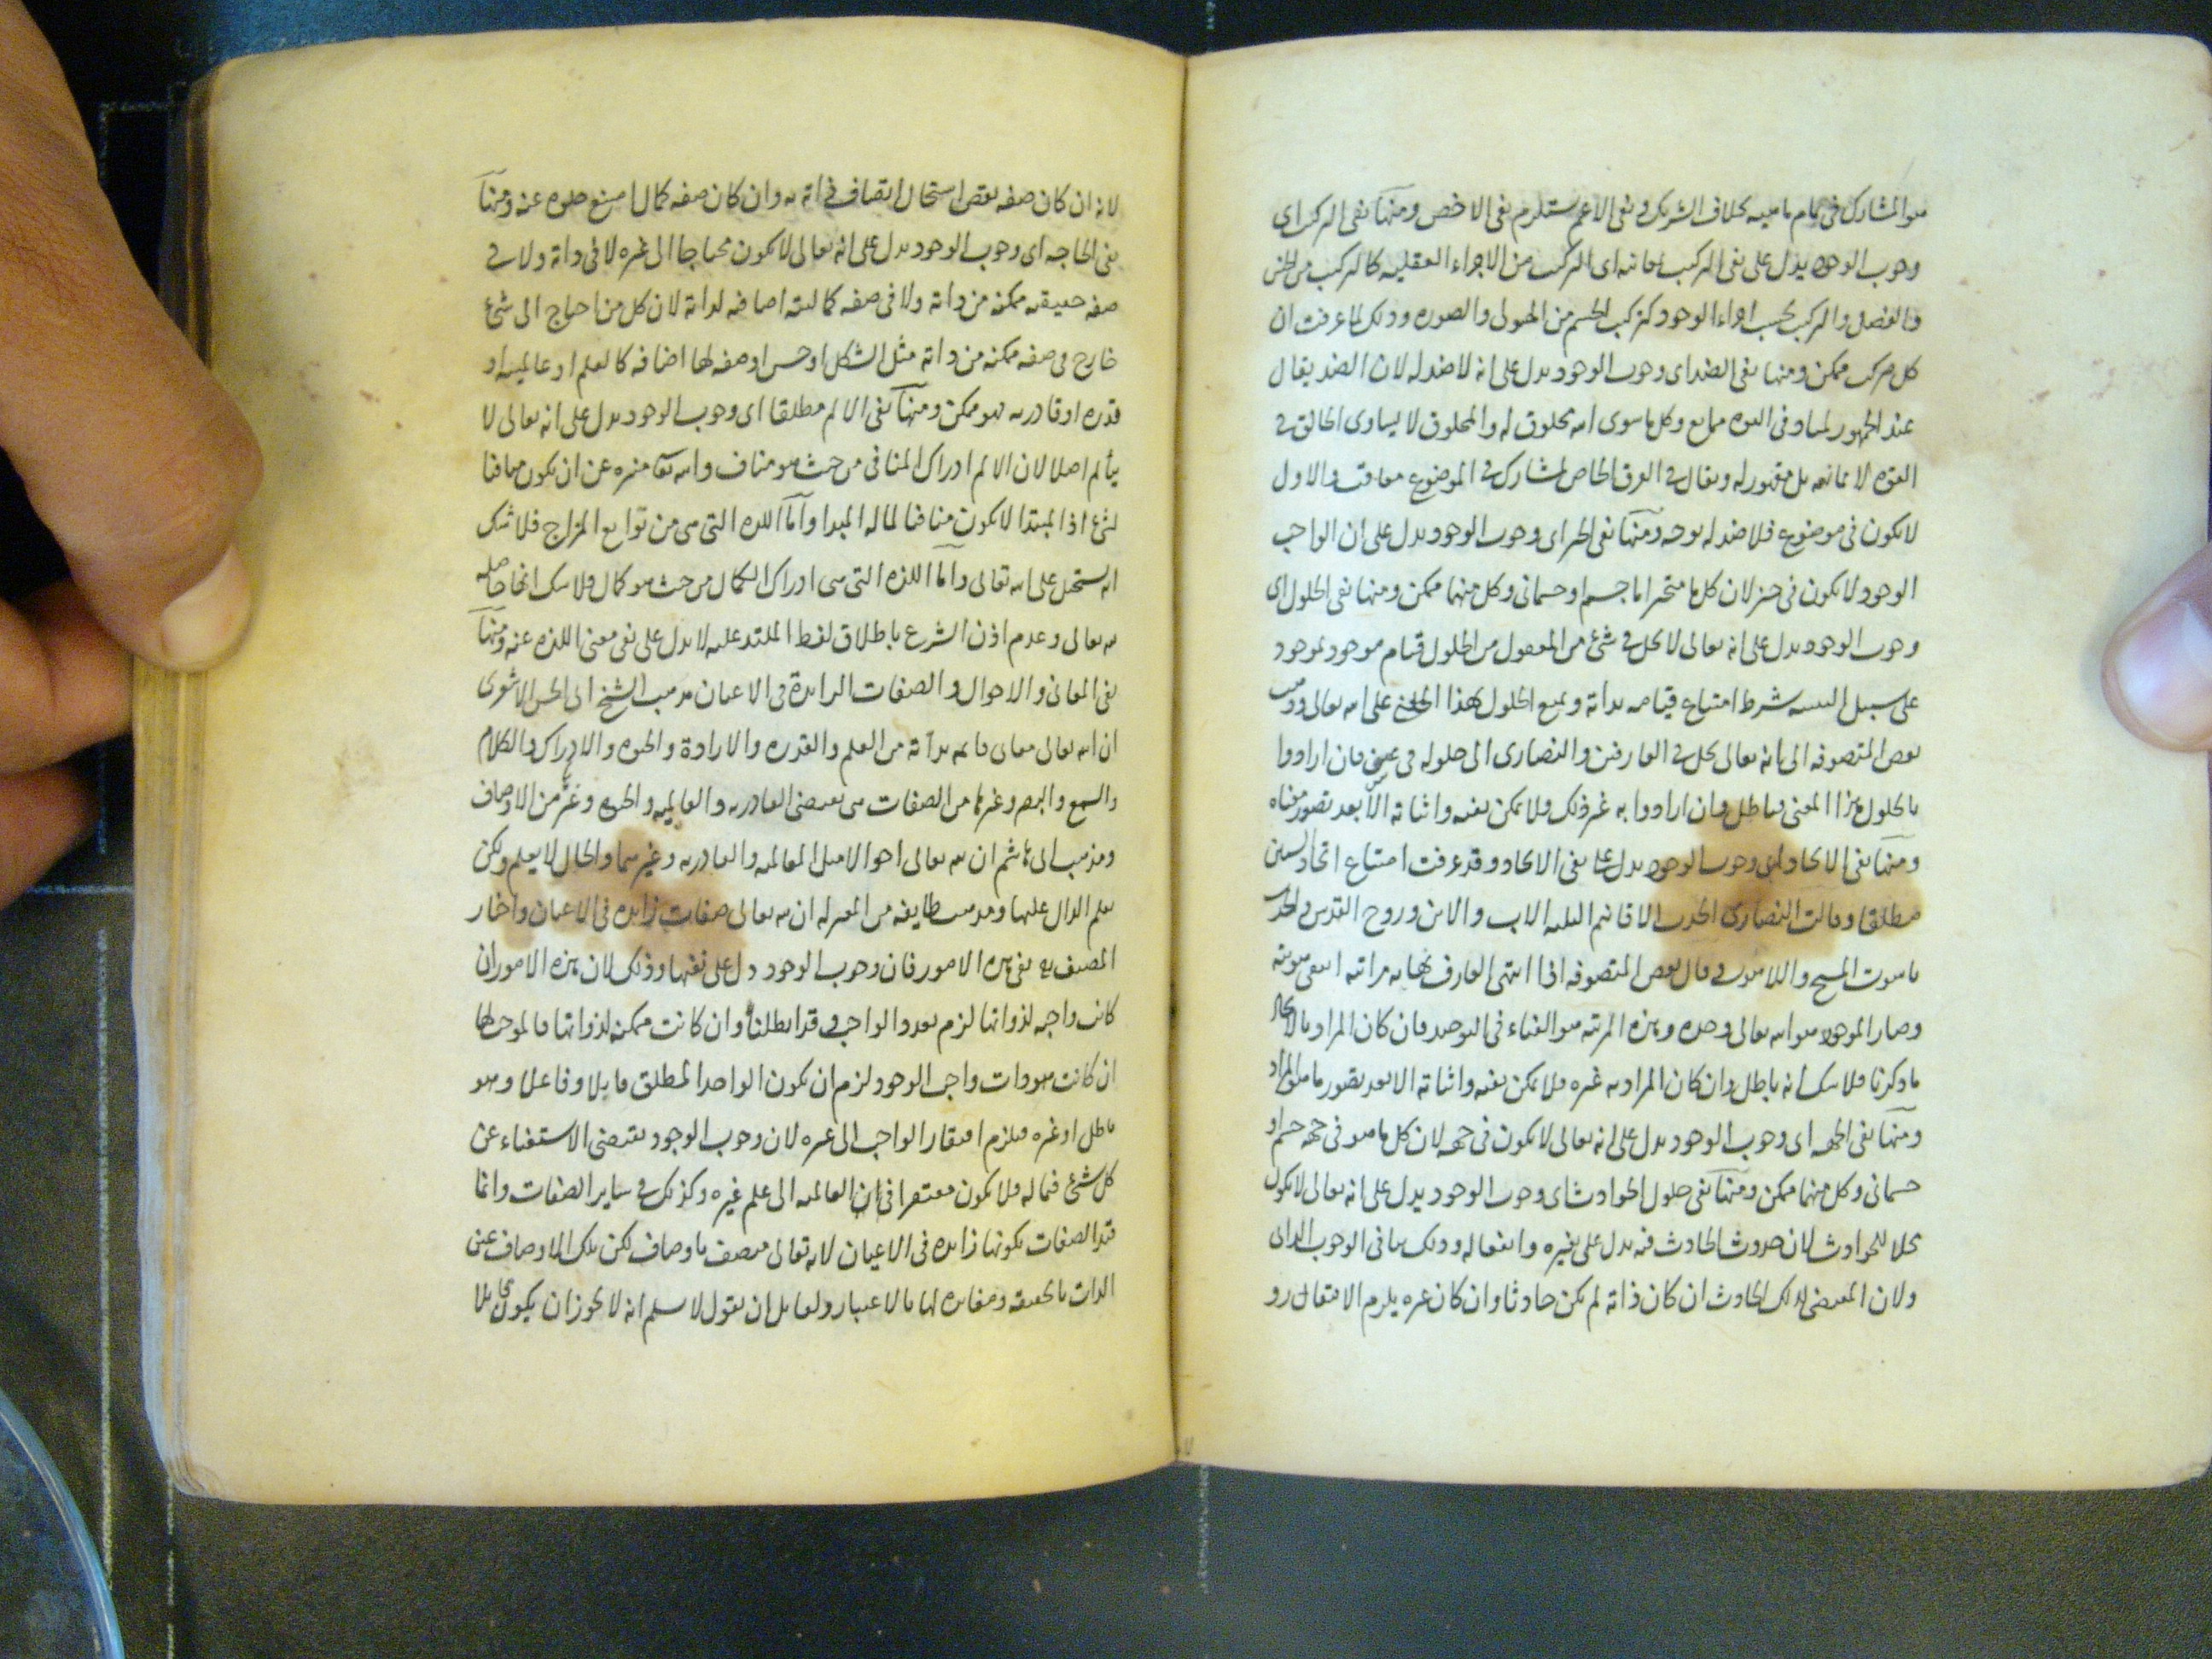 هو المشارك في تمام ماهيته بخلاف الشريك ونفى الاعم يستلزم نفى الاخص ومنها نفى التركيب اى
وجوب الوجود يدل على نفى التركيب بمعانيه اى التركيب من الاجزاء العقلية كالتركيب من الجنس
والفصل والتركيب بحسب اجزاء الوجود كتركيب الجسم من الهيولى والصورة وذلك لما عرفت ان
كل مركب ممكن ومنها نفى الضد اى وجوب الوجود يدل على انه لا ضد له لان الضد يقال
عند الجمهور لمساو في القوة ممانع وكل ما سوى الله مخلوق له والمخلوق لا يساوى الخالق في
القوة لا يمانعه بل مقهور له ويقال في العرف الخاص لمشارك في الموضوع معاقب والاول
لا يكون في موضوع فلا ضد له بوجه ومنها نفى التحيز اى وجوب الوجود يدل على ان الواجب
الوجود لا يكون في حيز لان كل ما متحيز اما جسم او جسمانى وكل منهما ممكن ومنها نفى الحلول اى
وجوب الوجود يدل على انه تعالى لا يحل في شئ من المعقول من الحلول قيام موجود بموجود
على سبيل التبعية بشرط امتناع قيامه بذاته ويمتنع الحلول بهذا المعنى على الله تعالى وذهب
بعض المتصوفة الى انه تعالى يحل في العارفين والنصارى الى حلوله في عيسى فان ارادوا
بالحلول هذا المعنى فباطل وان ارادوا به غير ذلك فلا يمكن نفيه واثباته الا بعد تصور معناه
ومنها نفى الاتحاد اى وجوب الوجود يدل على نفى الاتحاد وقد عرفت امتناع اتحاد الشيئين
مطلقا وقالت النصارى اتحدت الاقانيم الثلثة الاب والابن وروح القدس واتحدت
ناسوت المسيح واللاهوت وقال بعض المتصوفة اذا انتهى العارف نهاية مراتبه انتفى هويته
وصار الموجود هو الله تعالى وحده وهذه المرتبة هو الفناء في التوحيد فان كان المراد بالاتحاد
ما ذكرنا فلا شك انه باطل وان كان المراد به غيره فلا يمكن نفيه واثباته الا بعد تصور ما هو المراد
ومنها نفى الجهة اى وجوب الوجود يدل على انه تعالى لا يكون في جهة لان كل ما هو في جهة جسم او
جسمانى وكل منهما ممكن ومنها نفى حلول الحوادث اى وجوب الوجود يدل على انه تعالى لا يكون
محلا للحوادث لان حدوث الحادث فيه يدل على تغيره وانفعاله وذلك ينافى الوجوب الذاتى
ولان المقتضى لذلك الحادث ان كان ذاته لم يكن حادثا وان كان غيره يلزم الافتقار و
لانه ان كان صفة نقص استحال اتصاف ذاته به وان كان صفة كمال امتنع خلوه عنه ومنها
نفى الحاجة اى وجوب الوجود يدل على انه تعالى لا يكون محتاجا الى غيره لا في ذاته ولا في
صفة حقيقية ممكنة من ذاته ولا في صفة كمالية اضافية لذاته لان كل من احتاج الى شئ
خارج في صفة ممكنة من ذاته مثل الشكل او حسن او صفة لها اضافة كالعلم او عالمية او
قدرة او قادرية فهو ممكن ومنها نفى الالم مطلقا اى وجوب الوجود يدل على انه تعالى لا
يتألم اصلا لان الالم ادراك المنافى من حيث هو مناف والله تعا منزه عن ان يكون منافيا
لشئ اذ المبتدا لا يكون منافيا لما له المبدا واما اللذة التى هى من توابع المزاج فلا شك
انه يستحيل على الله تعالى واما اللذة التى هى ادراك الكمال من حيث هو كمال فلا شك انها حاصلة
لله تعالى وعدم اذن الشرع باطلاق لفظ الملتذ عليه لا يدل على نفى معنى اللذة عنه ومنها
نفى المعانى والاحوال والصفات الزايدة في الاعيان مذهب الشيخ ابى الحسن الاشعرى
ان لله تعالى معانى قايمة بذاته من العلم والقدرة والارادة والحيوة والادراك والكلام
والسمع والبصر وغيرها من الصفات هى تقتضى القادرية والعالمية والحيية وغير من الاوصاف
ومذهب ابى هاشم ان لله تعالى احوالا مثل العالمية والقادرية وغيرهما والحال لا يعلم ولكن
يعلم الدال عليها ومذهب طايفة من المعتزلة ان لله تعالى صفات زايدة في الاعيان واختار
المصنف نفى هذه الامور فان وجوب الوجود دل على نفيها وذلك لان هذه الامور ان
كانت واجبة لذواتها لزم تعدد الواجب وقد ابطلناه وان كانت ممكنة لذواتها فالموجب لها
ان كانت هو ذات واجب الوجود لزم ان يكون الواحد المطلق قابلا وفاعلا وهو
باطل او غيره فيلزم افتقار الواجب الى غيره لان وجوب الوجود يقتضى الاستغناء عن
كل شئ فماله فلا يكون مفتقرا في ان العالمية الى علم غيره وكذلك في ساير الصفات وانما
قيد الصفات بكونها زايدة في الاعيان لانه تعالى متصف باوصاف لكن تلك الاوصاف عين
الذات بالحقيقة ومغايرة لها بالاعتبار ولقايل ان يقول لا نسلم انه لا يجوز ان يكون قابلا